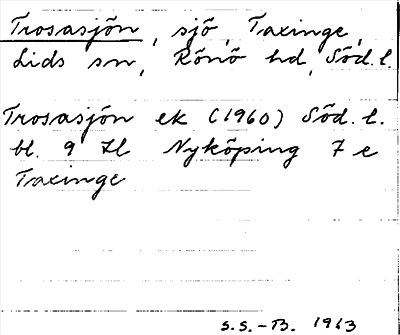 Trosasjön, sjö, Taxinge,
Lids sn, Rönö hd, Söd. l.
Trosasjön ek (1960) Söd. l.
bl. 9 H Nyköping 7 e
Taxinge
S.S.-B. 1963